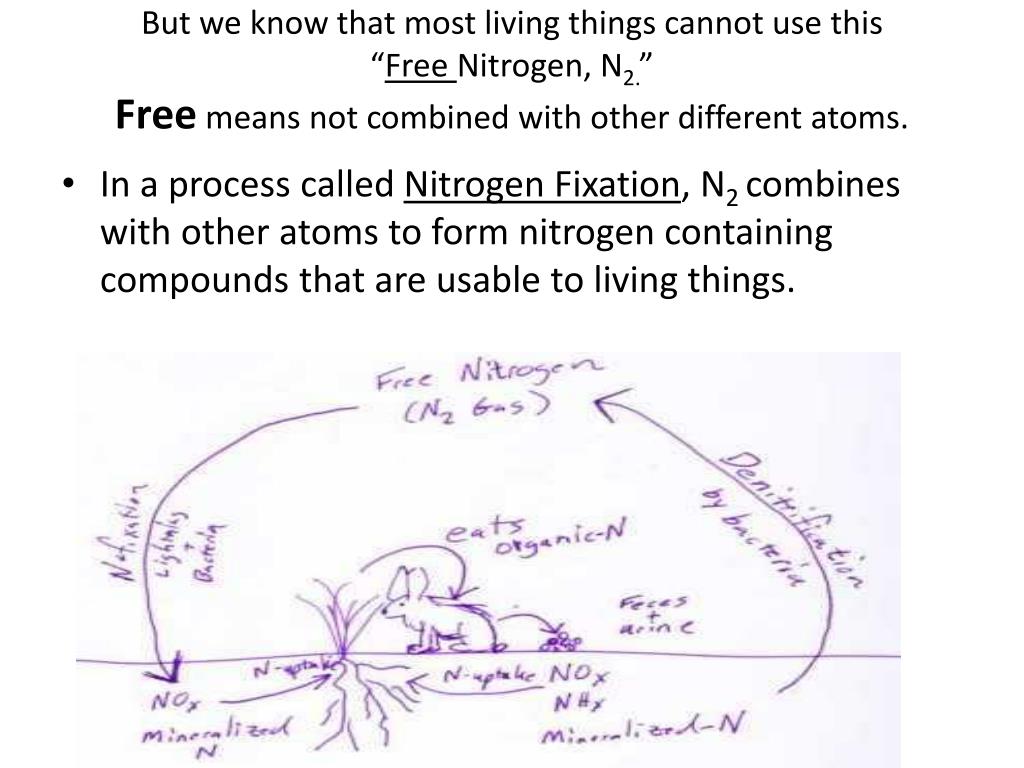 But we know that most living things cannot use this
“Free Nitrogen, N2.”
Free means not combined with other different atoms.
• In a process called Nitrogen Fixation, N2 combines
with other atoms to form nitrogen containing
compounds that are usable to living things.
Free Nitrogen
(N2 Gas)
N fixation
Lightning
+
Bacteria
eats
organic-N
Denitrification
by bacteria
Feces
+
urine
N-uptake
N-uptake NOx
NOx
NHx
mineralized
N
Mineralized-N